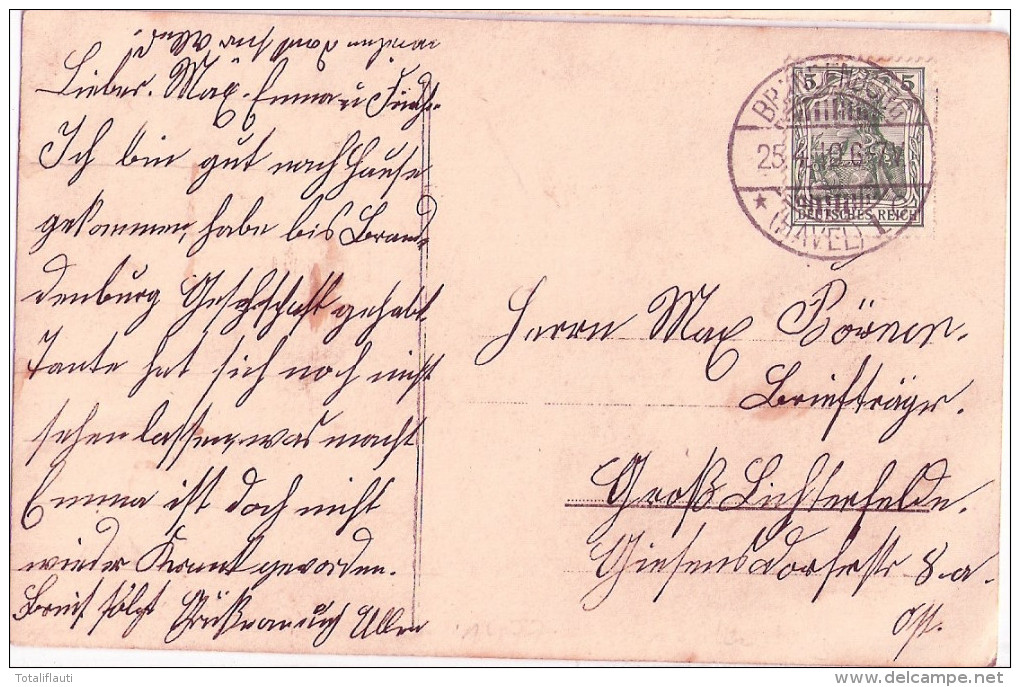 Lieber Max, Emma u
Ich bin gut nach Hause
gekommen, habe bis Bran-
denburg Gesellschaft gehabt
Tante hat sich noch nicht
sehen lassen, was macht
Emma ist doch nicht
wieder Krank geworden.
Brief folgt Grüße an euch Allen
BRANDENBURG
25.4.10.6-7N.
* (HAVEL) 1.
5 5
DEUTSCHES REICH
Herrn Max Börner.
Briefträger.
Groß Lichterfelde.
Giesensdorferstr 8a.
Ost.
© Totaliflauti
www.delcampe.net